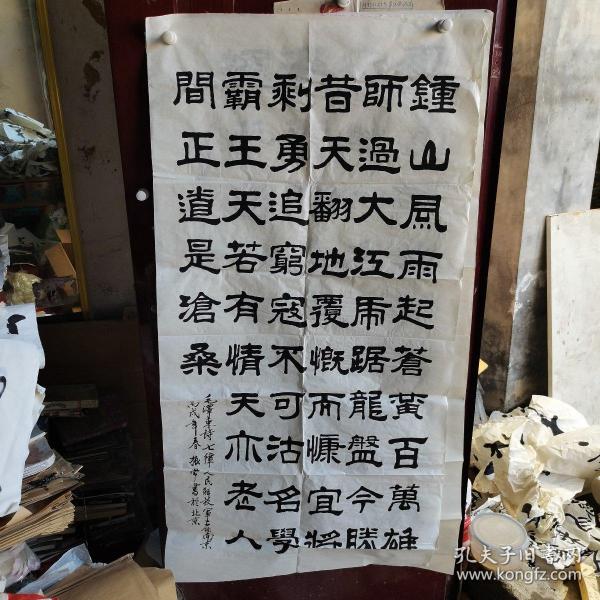 鍾山風雨起蒼黃百萬雄
師過大江虎踞龍盤今勝
昔天翻地覆慨而慷宜將
剩勇追窮寇不可沽名學
霸王天若有情天亦老人
間正道是滄桑
毛澤東詩七律人民解放軍占領南京
丙戌年春振書於北京
孔夫子旧书网
www.kongfz.com